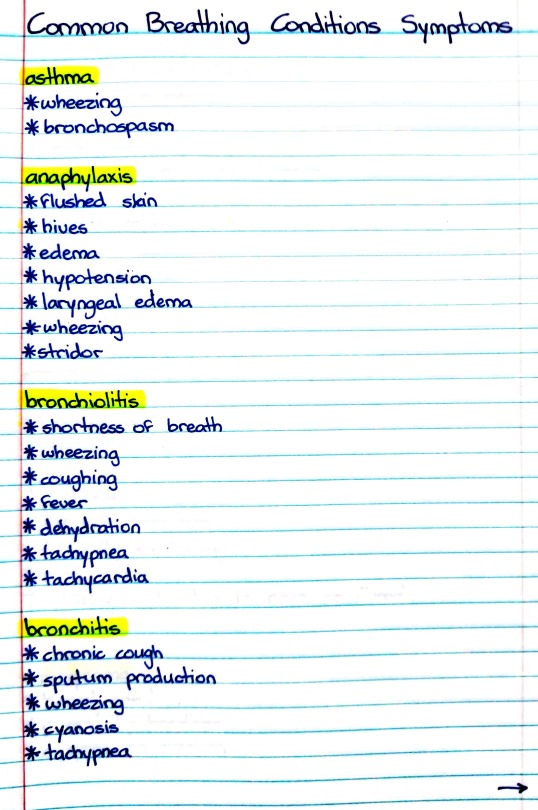 Common Breathing Conditions Symptoms
asthma
*wheezing
*bronchospasm
anaphylaxis
*flushed skin
*hives
*edema
*hypotension
*laryngeal edema
*wheezing
*stridor
bronchiolitis
*shortness of breath
*wheezing
*coughing
*fever
*dehydration
*tachypnea
*tachycardia
bronchitis
*chronic cough
*sputum production
*wheezing
*cyanosis
*tachypnea
→